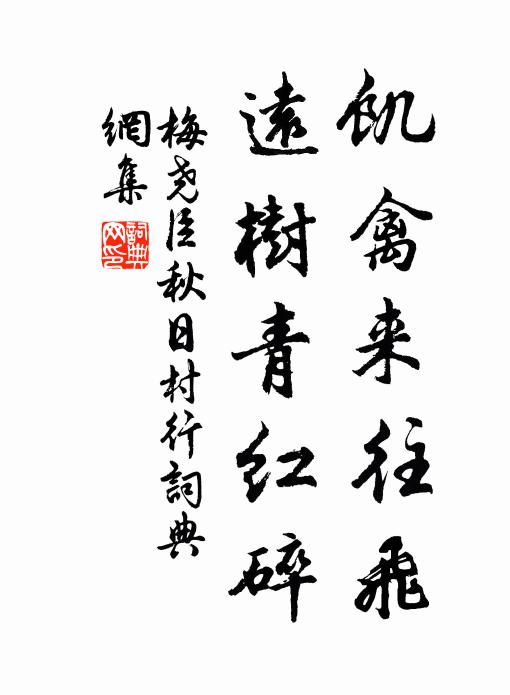 飢禽来往飛
遠樹青红碎
梅尧臣秋日村行詞典
網集
詞典
网印